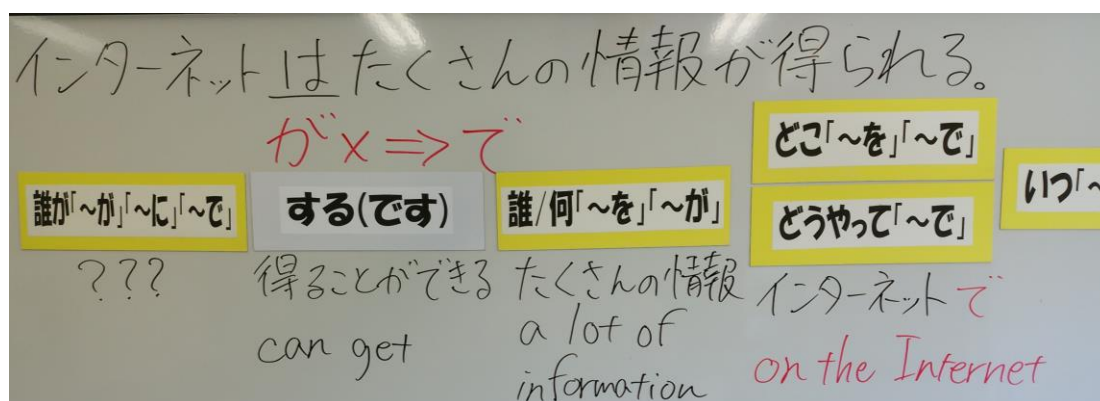 インターネットはたくさんの情報が得られる。
が×⇒で
誰が「～が」「～に」「～で」
する(です)
誰/何「～を」「～が」
どこ「～を」「～で」
どうやって「～で」
いつ「～
???
得ることができる
can get
たくさんの情報
a lot of
information
インターネットで
on the Internet